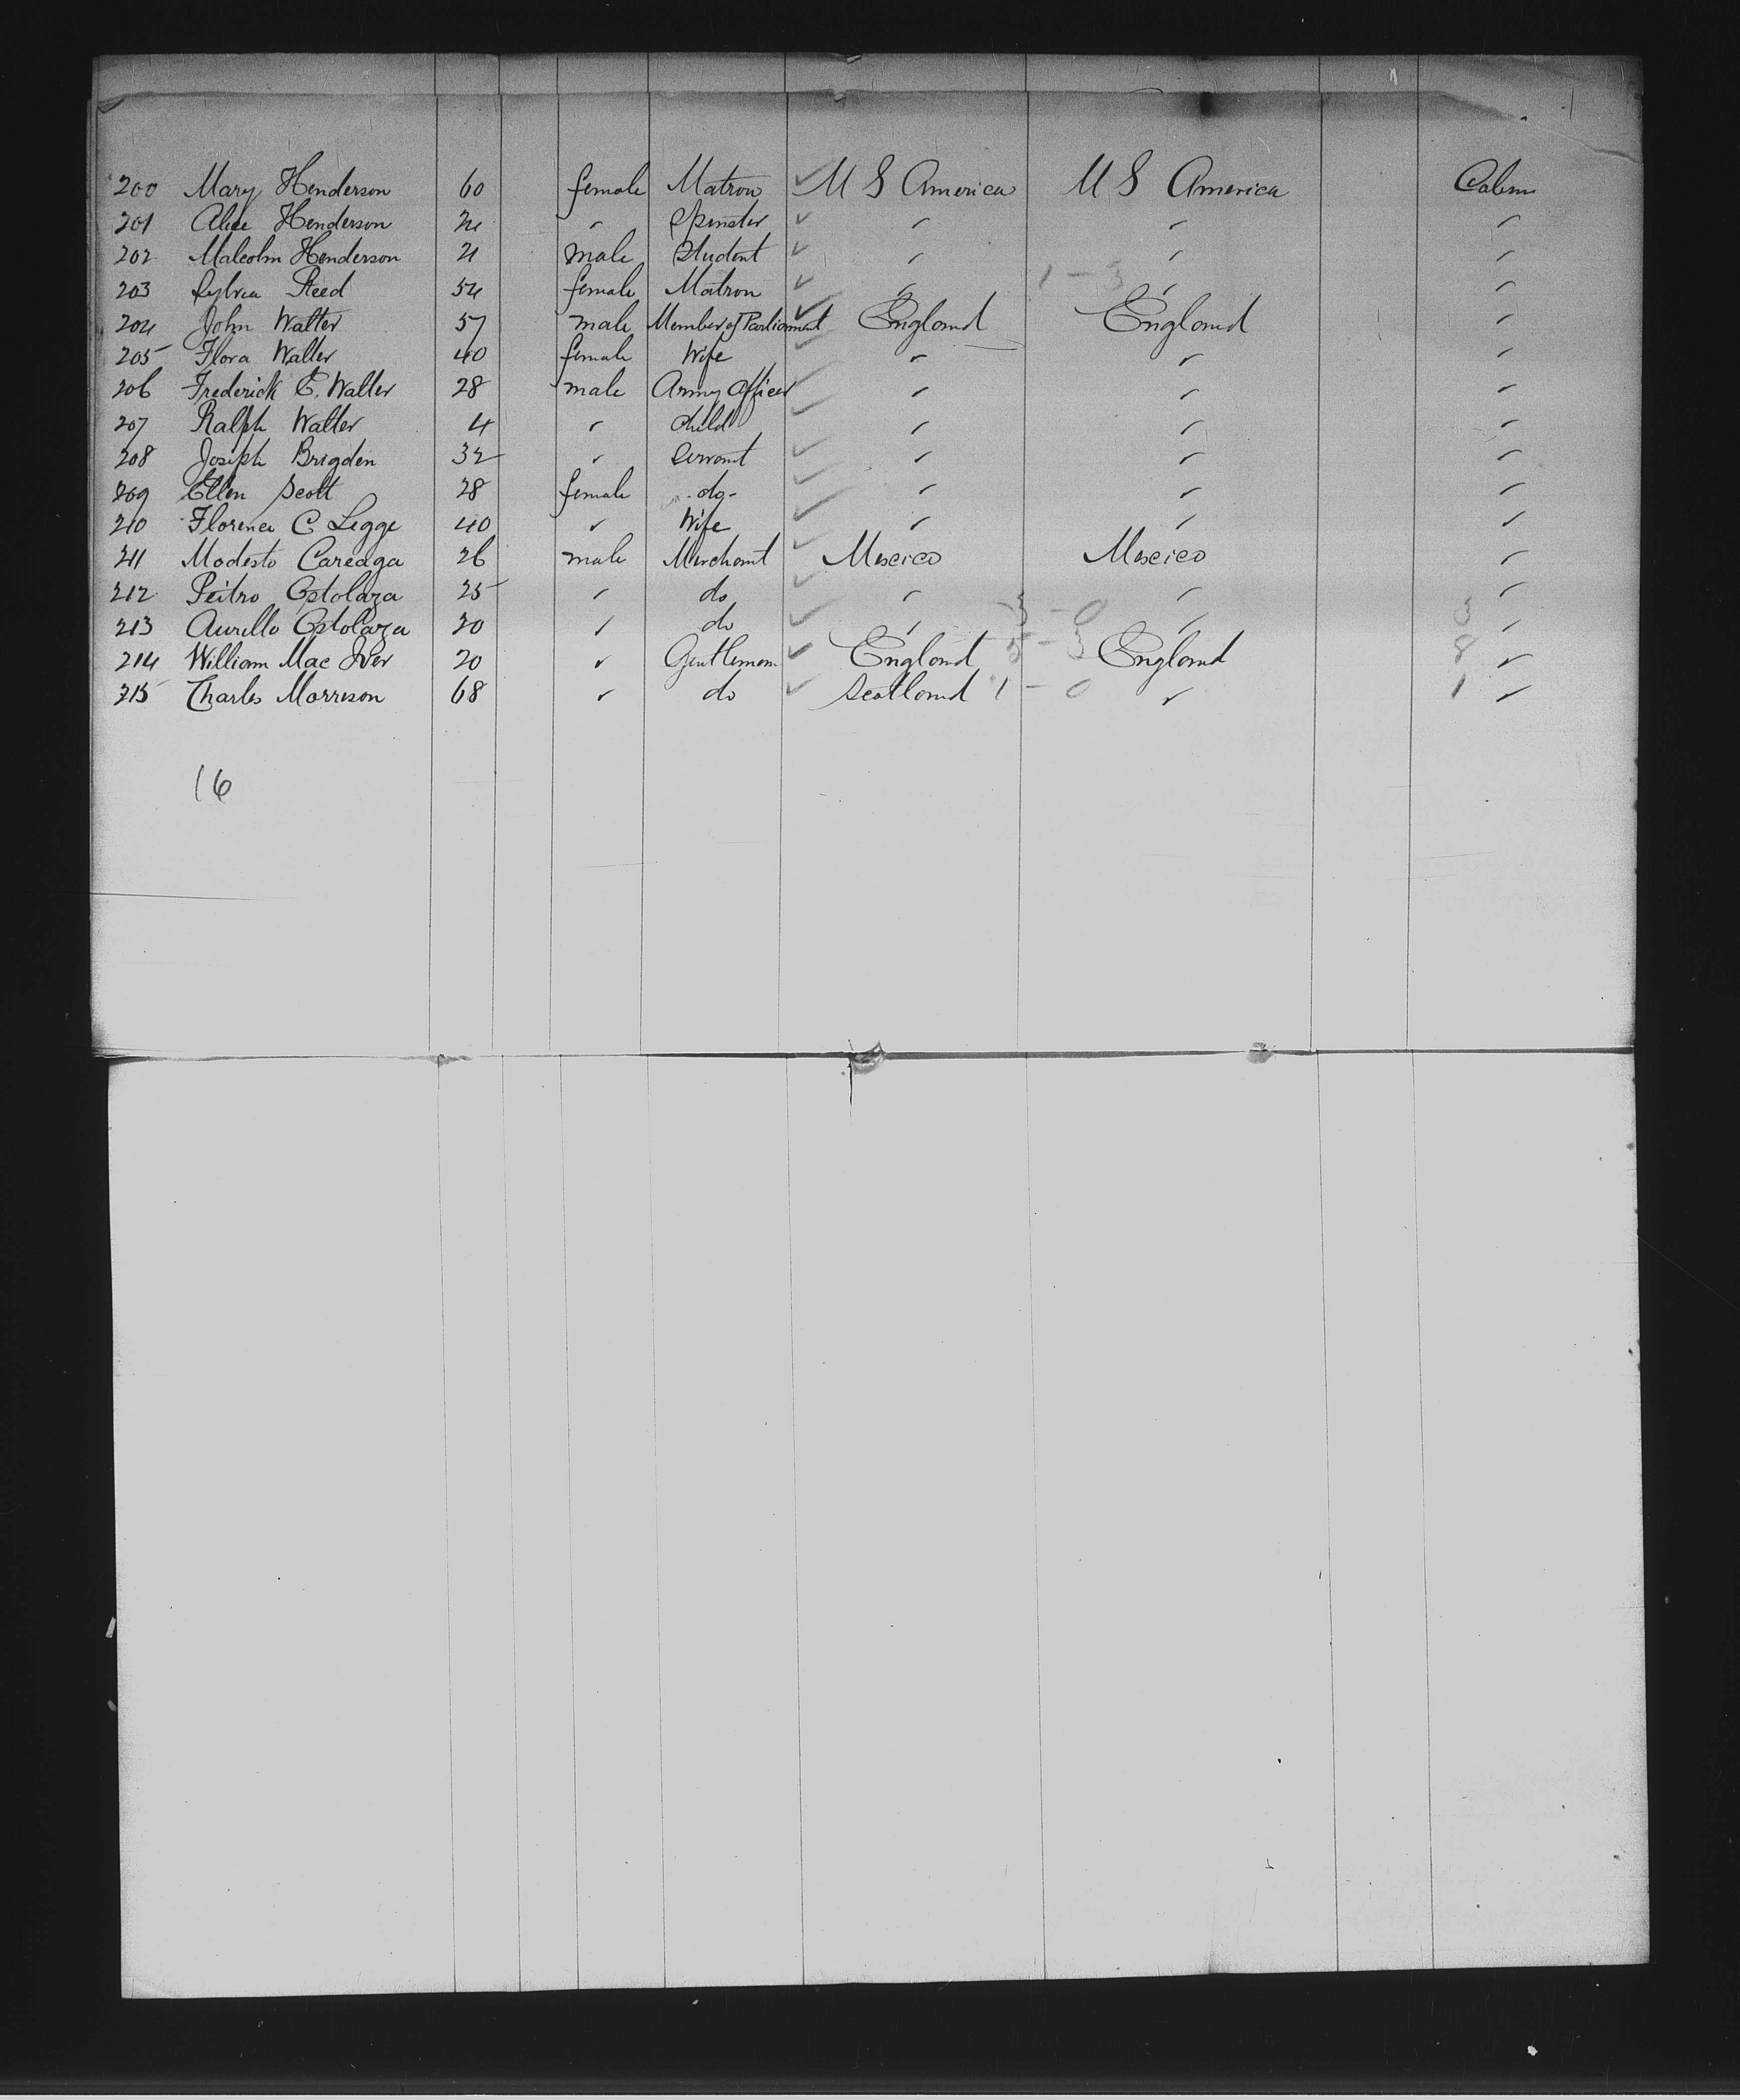 200 Mary Henderson 60 female Matron ✓ U S America U S America Cabin
201 Alice Henderson 24 " Spinster ✓ " " "
202 Malcolm Henderson 21 male Student ✓ " " "
203 Sylvia Reed 54 female Matron ✓ " 1 - 3 " "
204 John Walter 57 male Member of Parliament ✓ England England "
205 Flora Walter 40 female Wife ✓ " " "
206 Frederick E. Walter 28 male Army Officer ✓ " " "
207 Ralph Walter 4 " Child ✓ " " "
208 Joseph Brigden 32 " Servant ✓ " " "
209 Ellen Scott 28 female -do- ✓ " " "
210 Florence C Legge 40 " Wife ✓ " " "
211 Modesto Careaga 26 male Merchant ✓ Mexico Mexico "
212 Peitro Ostolaza 25 " do ✓ " " "
213 Aurillo Ostolaza 20 " do ✓ " 3 - 0 " 3 "
214 William Mac Iver 20 " Gentleman ✓ England 5 - 3 England 8 "
215 Charles Morrison 68 " do ✓ Scotland 1 - 0 " 1 "
16